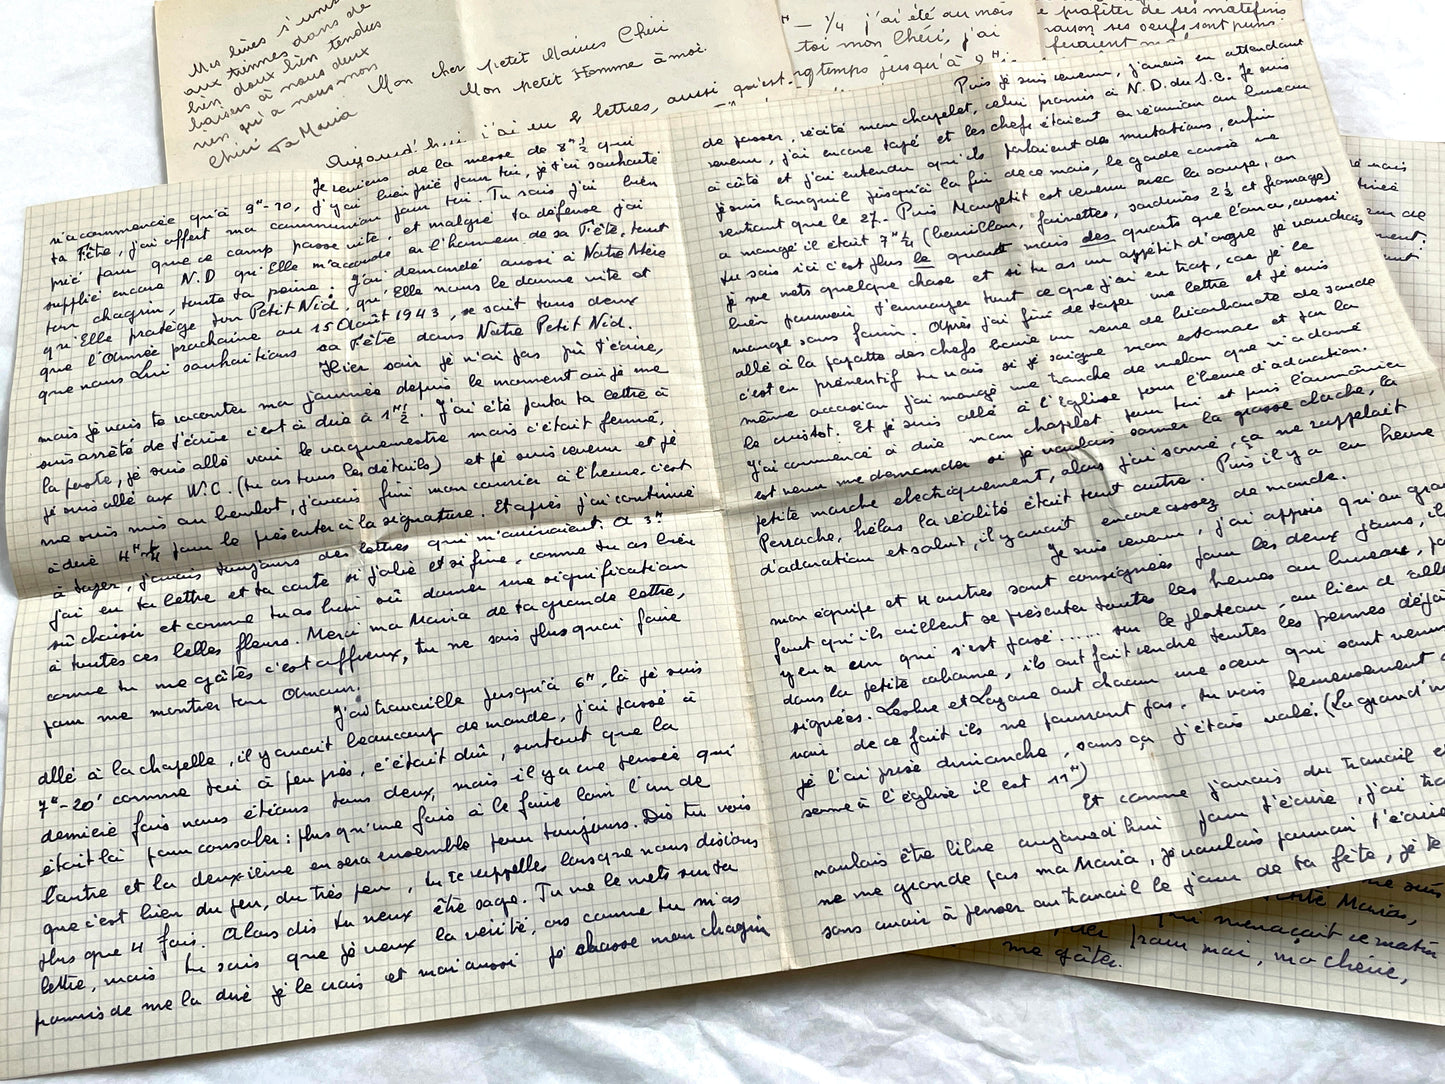 Mes lèvres s'unissent
aux tiennes dans de
bien doux bien tendres
baisers à nous deux
rien qu'à nous mon
Chéri
Ta Maria
Mon cher petit Maines Chéri
Mon petit Homme à moi.
Aujourd'hui j'ai eu 2 lettres, aussi qu'est
H — 1/4 j'ai été au mois
toi mon Chéri, j'ai
longtemps jusqu'à 9H
profiter de ses matefins
raison, ses oeufs sont
feraient
Je reviens de la messe de 8H 1/2 qui
n'a commencée qu'à 9H-10, j'y ai bien prié pour toi, je t'ai souhaité
ta Fête, j'ai offert ma communion pour toi. Tu sais j'ai bien
prié pour que ce camp passe vite, et malgré ta défense j'ai
supplié encore N.D qu'Elle m'accorde en l'honneur de sa Fête, tout
ton chagrin, toute ta peine. J'ai demandé aussi à Notre Mère
qu'Elle protège son Petit Nid, qu'Elle nous le donne vite et
que l'Année prochaine au 15 Août 1943, ce soit tous deux
que nous Lui souhaitions sa Fête dans Notre Petit Nid.
Hier soir je n'ai pas pu t'écrire,
mais je vais te raconter ma journée depuis le moment où je me
suis arrêté de t'écrire c'est à dire à 1H 1/2. J'ai été porter ta lettre à
la poste, je suis allé voir le vaguemestre mais c'était fermé,
je suis allé aux W.C. (tu as tous les détails) et je suis revenu et je
me suis mis au boulot, j'avais fini mon courrier à l'heure c'est
à dire 4H 1/4 pour le présenter à la signature. Et après j'ai continué
à taper, j'avais toujours des lettres qui m'arrivaient. A 3H
j'ai eu ta lettre et ta carte si jolie et si fine, comme tu as bien
su choisir et comme tu as bien su donner une signification
à toutes ces belles fleurs. Merci ma Maria de ta grande lettre,
comme tu me gâtes c'est affreux, tu ne sais plus quoi faire
pour me montrer ton Amour.
J'ai travaillé jusqu'à 6H, là je suis
allé à la chapelle, il y avait beaucoup de monde, j'ai passé à
7H-20' comme toi à peu près, c'était dur, surtout que la
dernière fois nous étions tous deux, mais il y a une pensée qui
était là pour consoler: plus qu'une fois à le faire loin l'un de
l'autre et la deuxième on sera ensemble pour toujours. Dis tu vois
que c'est bien du peu, du très peu, tu te rappelles lorsque nous disions
plus que 4 fois. Alors dis tu veux être sage. Tu me le mets sur ta
lettre, mais tu sais que je veux la vérité, or comme tu m'as
promis de me la dire je le crois et moi aussi je chasse mon chagrin
Puis je suis revenu, j'avais en attendant
de passer, récité mon chapelet, celui promis à N.D. du S.C. Je suis
revenu, j'ai encore tapé et les chefs étaient en réunion au bureau
à côté et j'ai entendu qu'ils parlaient des mutations, enfin
je suis tranquil jusqu'à la fin de ce mois, le garde caisse ne
rentrant que le 27. Puis Mangetit est revenu avec la soupe, on
a mangé il était 7H 1/4 (bouillon, favettes, sardines 2 1/2 et fromage)
tu sais ici c'est plus le quart mais des quarts que l'on a, aussi
je me mets quelque chose et si tu as un appétit d'ogre je voudrais
bien pouvoir t'envoyer tout ce que j'ai en trop, car je le
mange sans faim. Après j'ai fini de taper une lettre et je suis
allé à la popotte des chefs boire un verre de bicarbonate de soude
c'est en préventif tu vois si je soigne mon estomac et par la
même occasion j'ai mangé une tranche de melon que m'a donné
le cuistot. Et je suis allé à l'Eglise pour l'heure d'adoration.
J'ai commencé à dire mon chapelet pour toi et puis l'aumônier
est venu me demander si je voulais sonner la grosse cloche, la
petite marche électriquement, alors j'ai sonné, ça me rappelait
Perrache, hélas la réalité était tout autre. Puis il y a eu heure
d'adoration et salut, il y avait encore assez de monde.
Je suis revenu, j'ai appris qu'au gra
mon équipe et 4 autres sont consignées pour les deux jours, il
faut qu'ils aillent se présenter toutes les heures au bureau, pa
y en a un qui s'est passé ...... sur le plateau, au lieu d'alle
dans la petite cabanne, ils ont fait rendre toutes les permes déjà
signées. Leslre et Lazare ont chacun une sœur qui sont venue
voir de ce fait ils ne pourront pas, tu vois heureusement q
je l'ai prise dimanche, sans ça j'étais volé. (La grand'm
sonne à l'église il est 11H)
Et comme j'avais du travail e
voulais être libre aujourd'hui pour t'écrire, j'ai tra
ne me gronde pas ma Maria, je voulais pouvoir t'écrire
sans avoir à penser au travail le jour de ta fête, je te
me suis
petite Maria,
qui menaçait ce matin
pour moi, ma chérie,
me gâter.